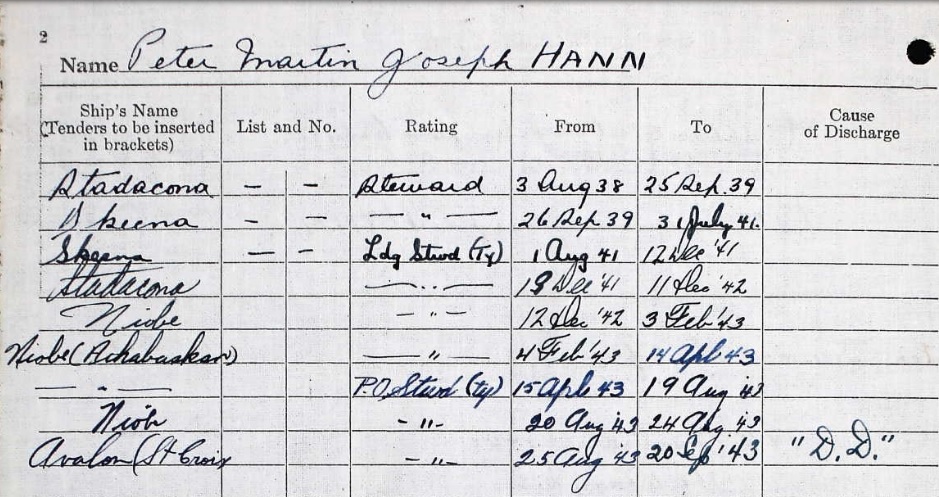 2
Name Peter Martin Joseph HANN
Ship's Name (Tenders to be inserted in brackets) List and No. Rating From To Cause of Discharge
Stadacona — — Steward 3 Aug 38 25 Sep. 39
Skeena — — — " — 26 Sep 39 31 July 41.
Skeena — — Ldg Stwd (Ty) 1 Aug 41 12 Dec '41
Stadacona — " — 13 Dec '41 11 Dec '42
Niobe - " - 12 Dec '42 3 Feb '43
Niobe (Athabaskan) — " 4 Feb '43 14 Apl 43
— " — P.O. Stwd (Ty) 15 Apl 43 19 Aug 43
Niobe - " - 20 Aug '43 24 Aug '43
Avalon (St Croix - " - 25 Aug 43 20 Sep '43 "D.D."